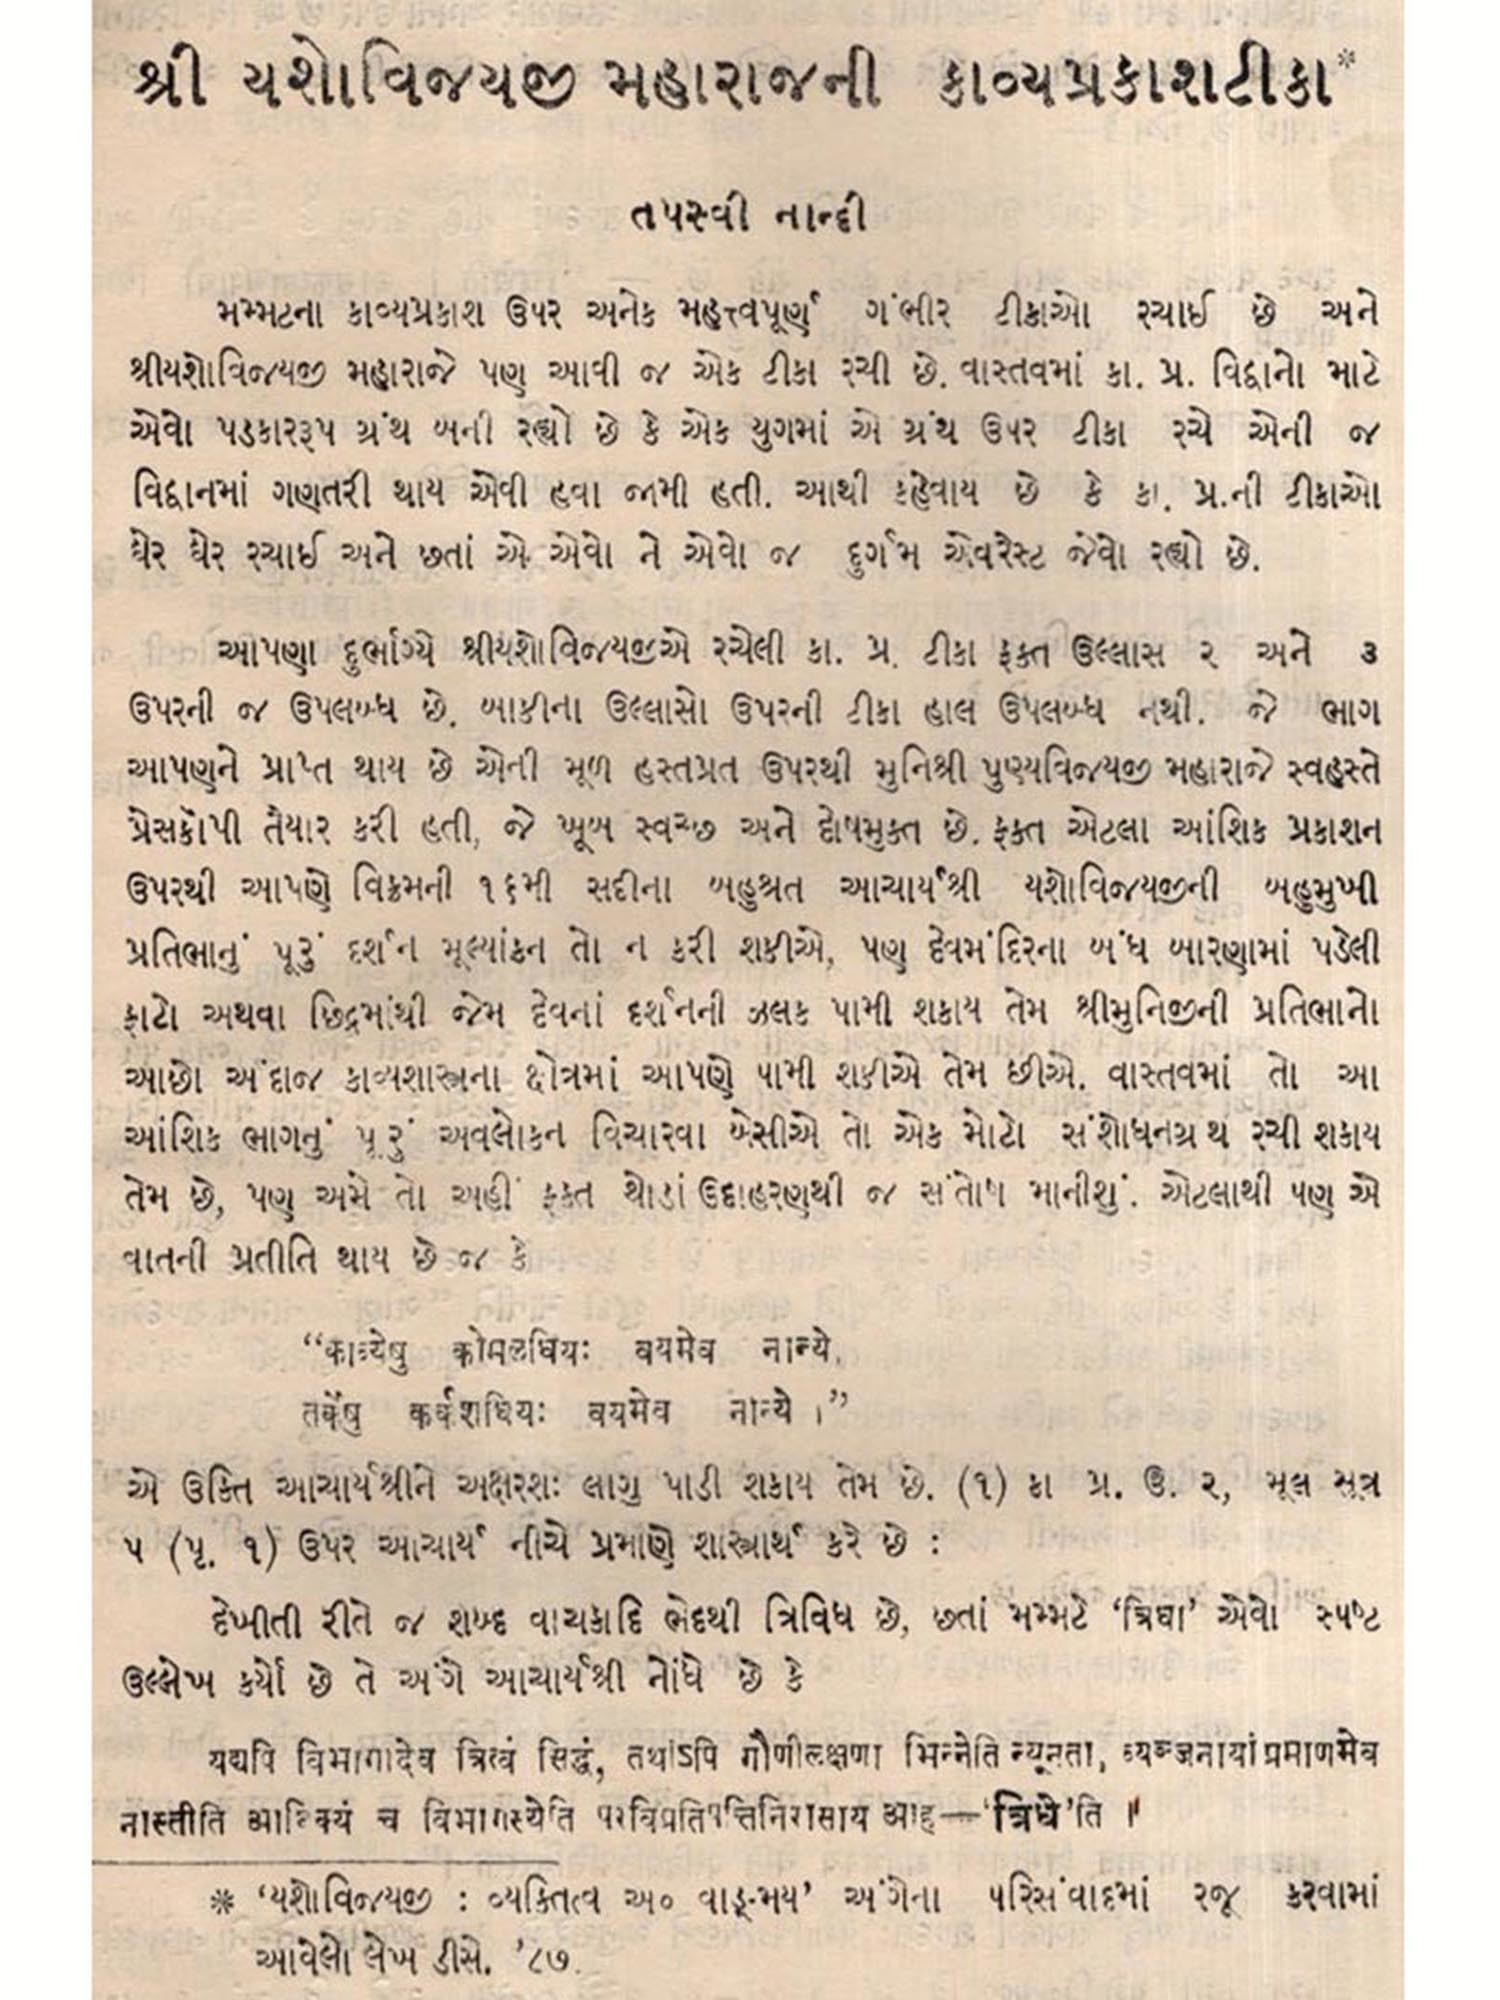 શ્રી યશોવિજયજી મહારાજની કાવ્યપ્રકાશટીકા*
તપસ્વી નાન્દી
મમ્મટના કાવ્યપ્રકાશ ઉપર અનેક મહત્ત્વપૂર્ણ ગંભીર ટીકાઓ રચાઈ છે અને
શ્રીયશોવિજયજી મહારાજે પણ આવી જ એક ટીકા રચી છે. વાસ્તવમાં કા. પ્ર. વિદ્વાનો માટે
એવો પડકારરૂપ ગ્રંથ બની રહ્યો છે કે એક યુગમાં એ ગ્રંથ ઉપર ટીકા રચે એની જ
વિદ્વાનમાં ગણતરી થાય એવી હવા જામી હતી. આથી કહેવાય છે કે કા. પ્ર.ની ટીકાઓ
ઘેર ઘેર રચાઈ અને છતાં એ એવો ને એવો જ દુર્ગમ એવરેસ્ટ જેવો રહ્યો છે.
આપણા દુર્ભાગ્યે શ્રીયશોવિજયજીએ રચેલી કા. પ્ર. ટીકા ફક્ત ઉલ્લાસ ૨ અને ૩
ઉપરની જ ઉપલબ્ધ છે. બાકીના ઉલ્લાસો ઉપરની ટીકા હાલ ઉપલબ્ધ નથી. જે ભાગ
આપણને પ્રાપ્ત થાય છે એની મૂળ હસ્તપ્રત ઉપરથી મુનિશ્રી પુણ્યવિજયજી મહારાજે સ્વહસ્તે
પ્રેસકૉપી તૈયાર કરી હતી, જે ખૂબ સ્વચ્છ અને દોષમુક્ત છે. ફક્ત એટલા આંશિક પ્રકાશન
ઉપરથી આપણે વિક્રમની ૧૬મી સદીના બહુશ્રત આચાર્યશ્રી યશોવિજયજીની બહુમુખી
પ્રતિભાનું પૂરું દર્શન મૂલ્યાંકન તો ન કરી શકીએ, પણ દેવમંદિરના બંધ બારણામાં પડેલી
ફાટો અથવા છિદ્રમાંથી જેમ દેવનાં દર્શનની ઝલક પામી શકાય તેમ શ્રીમુનિજીની પ્રતિભાનો
આછો અંદાજ કાવ્યશાસ્ત્રના ક્ષેત્રમાં આપણે પામી શકીએ તેમ છીએ. વાસ્તવમાં તો આ
આંશિક ભાગનું પૂરું અવલોકન વિચારવા બેસીએ તો એક મોટો સંશોધનગ્રંથ રચી શકાય
તેમ છે, પણ અમે તો અહીં ફક્ત થોડાં ઉદાહરણથી જ સંતોષ માનીશું. એટલાથી પણ એ
વાતની પ્રતીતિ થાય છે જ કે
“काव्येषु कोमलधियः वयमेव नान्ये,
तर्केषु कर्कशधियः वयमेव नान्ये ।”
એ ઉક્તિ આચાર્યશ્રીને અક્ષરશઃ લાગુ પાડી શકાય તેમ છે. (૧) કા પ્ર. ઉ. ૨, મૂલ સૂત્ર
૫ (પૃ. ૧) ઉપર આચાર્ય નીચે પ્રમાણે શાસ્ત્રાર્થ કરે છે :
દેખીતી રીતે જ શબ્દ વાચકાદિ ભેદથી ત્રિવિધ છે, છતાં મમ્મટે ‘ત્રિધા’ એવો સ્પષ્ટ
ઉલ્લેખ કર્યો છે તે અંગે આચાર્યશ્રી નોંધે છે કે
यद्यपि विभागादेव त्रित्वं सिद्धं, तथाऽपि गौणीलक्षणा भिन्नेति न्यूनता, व्यञ्जनायां प्रमाणमेव
नास्तीति आधिक्यं च विभागस्येति परविप्रतिपत्तिनिरासाय आह—‘त्रिधे’ति ।
* ‘યશોવિજયજી : વ્યક્તિત્વ અ૦ વાઙ્‌મય’ અંગેના પરિસંવાદમાં રજૂ કરવામાં
આવેલો લેખ ડીસે. ’૮૭.